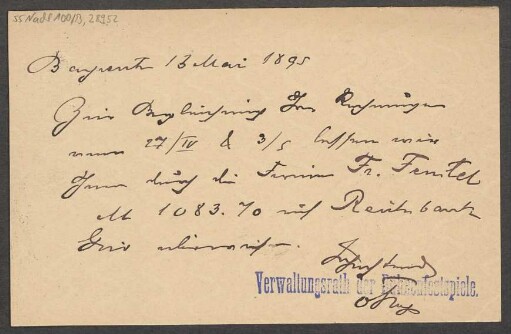 55 Nachl 100/B, 28952
Bayreuth 13 Mai 1895
Zur Begleichung Ihrer Rechnungen
vom 27/IV & 3/5 lassen wir
Ihnen durch die Firma Fr. Feustel
M 1083.70 auf Reichsbank
Giro überweisen.
Verwaltungsrath der Bühnenfestspiele.